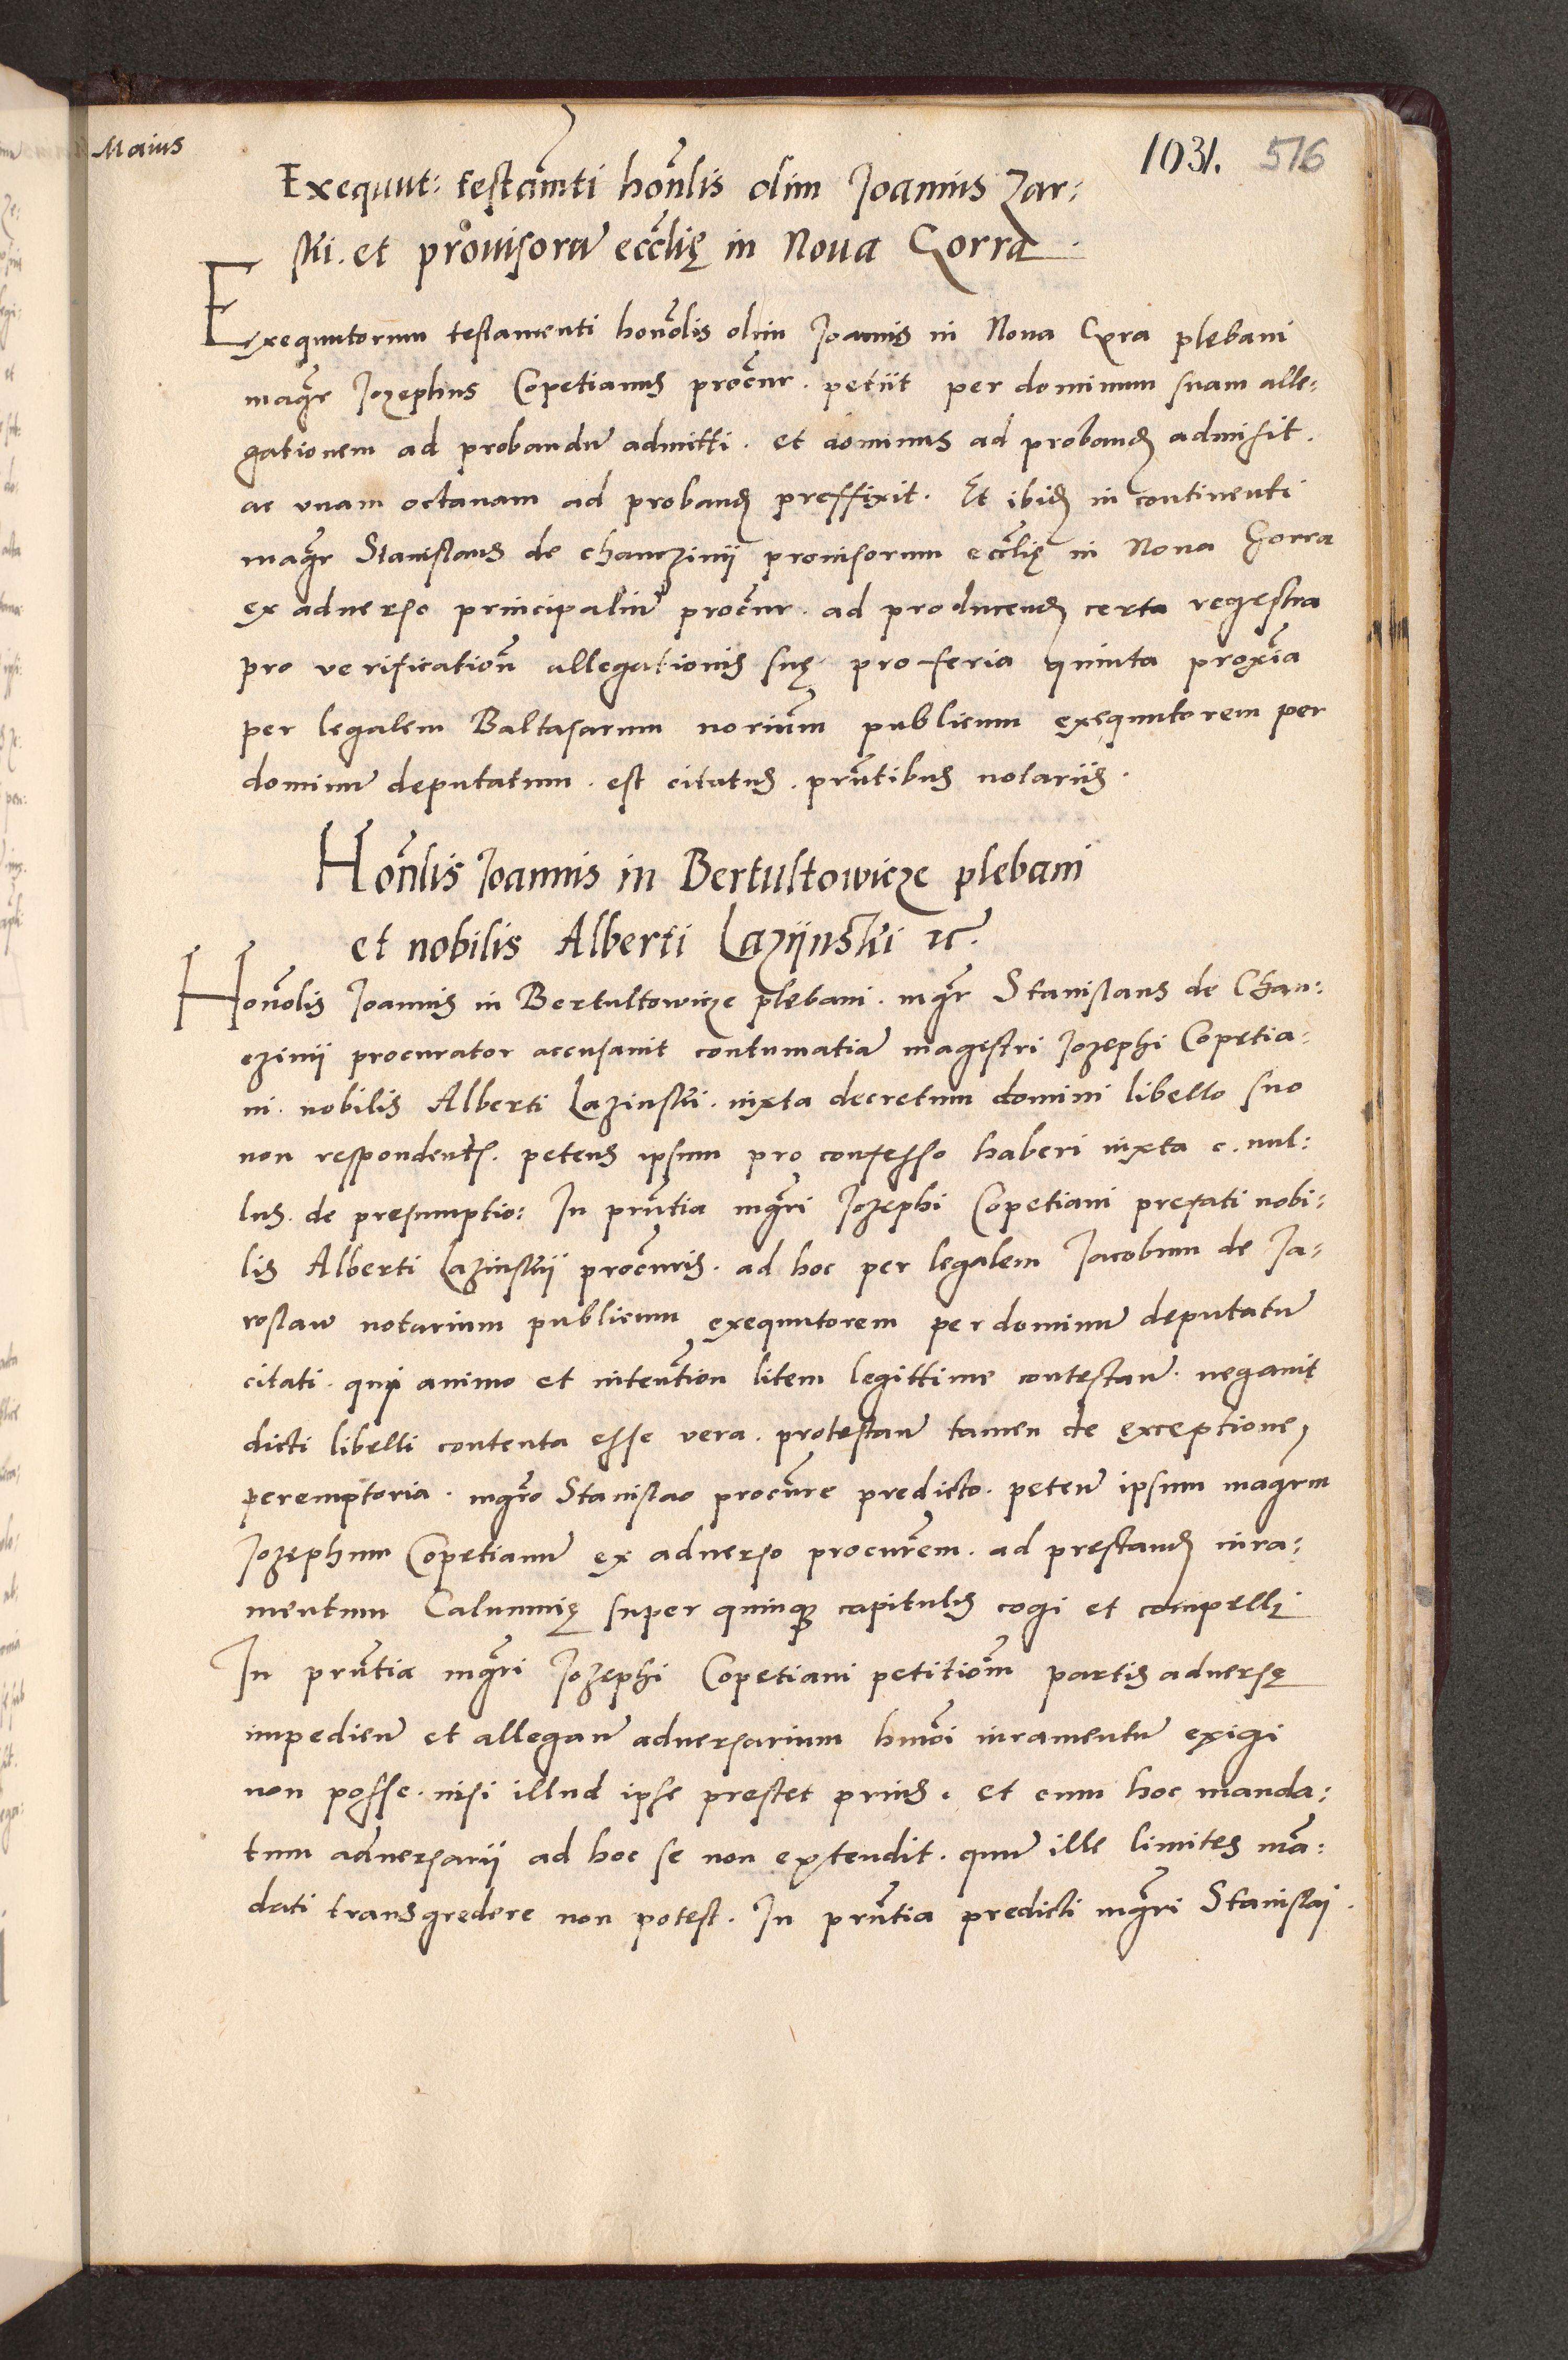 Maius
1031. 516
Exequut: testamti honlis olim Joannis Zar:
ski. et prouisorum ecclię in Noua Gorra
Exequutorum testamenti honolis olim Joannis in Noua Gora plebani
magr Jozephus Copetianus procur. petiit per dominum suam alle:
gationem ad probandum admitti. et dominus ad proband admisit.
ac unam octauam ad proband preffixit. Et ibid in continenti
magr Stanislaus de chanczinij prouisorum eccłię in Noua Gorra
ex aduerso principalium procur. ad producend certa regestra
pro verification allegationis suę pro feria quinta proxia
per legalem Baltasarum norium publicum exequutorem per
dominum deputatum. est citatus. pntibus notariis.
Honlis Joannis in Bertultowicze plebani
et nobilis Alberti Lazijnski zc.
Honolis Joannis in Bertultowicze plebani. mgr Stanislaus de Chan:
czinij procurator accusauit contumatiam magistri Jozephi Copetia:
ni. nobilis Alberti Lazinski. iuxta decretum domini libello suo
non respondents. petens ipsum pro confesso haberi iuxta c. nul:
lus. de presumptio: In pntia mgri Jozephi Copetiani prefati nobi:
lis Alberti Lazinskij procuris. ad hoc per legalem Jacobum de Ja:
roslaw notarium publicum exequutorem per dominum deputatum
citati. qui animo et intention litem legittime contestan. negauit
dicti libelli contenta esse vera. protestan tamen de exceptione
peremptoria. mgro Stanislao procure predicto. peten ipsum magrm
Jozephum Copetianum ex aduerso procurem. ad prestand iura:
mentum Calumnię super quinque capitulis cogi et compelli
In pntia mgri Jozephi Copetiani petitiom partis aduersę
impedien et allegan aduersarium hmoi iuramentum exigi
non posse. nisi illud ipse prestet prius. et cum hoc manda:
tum aduersarij ad hoc se non extendit. quum ille limites ma:
dati transgredere non potest. In pntia predicti mgri Stanislai.